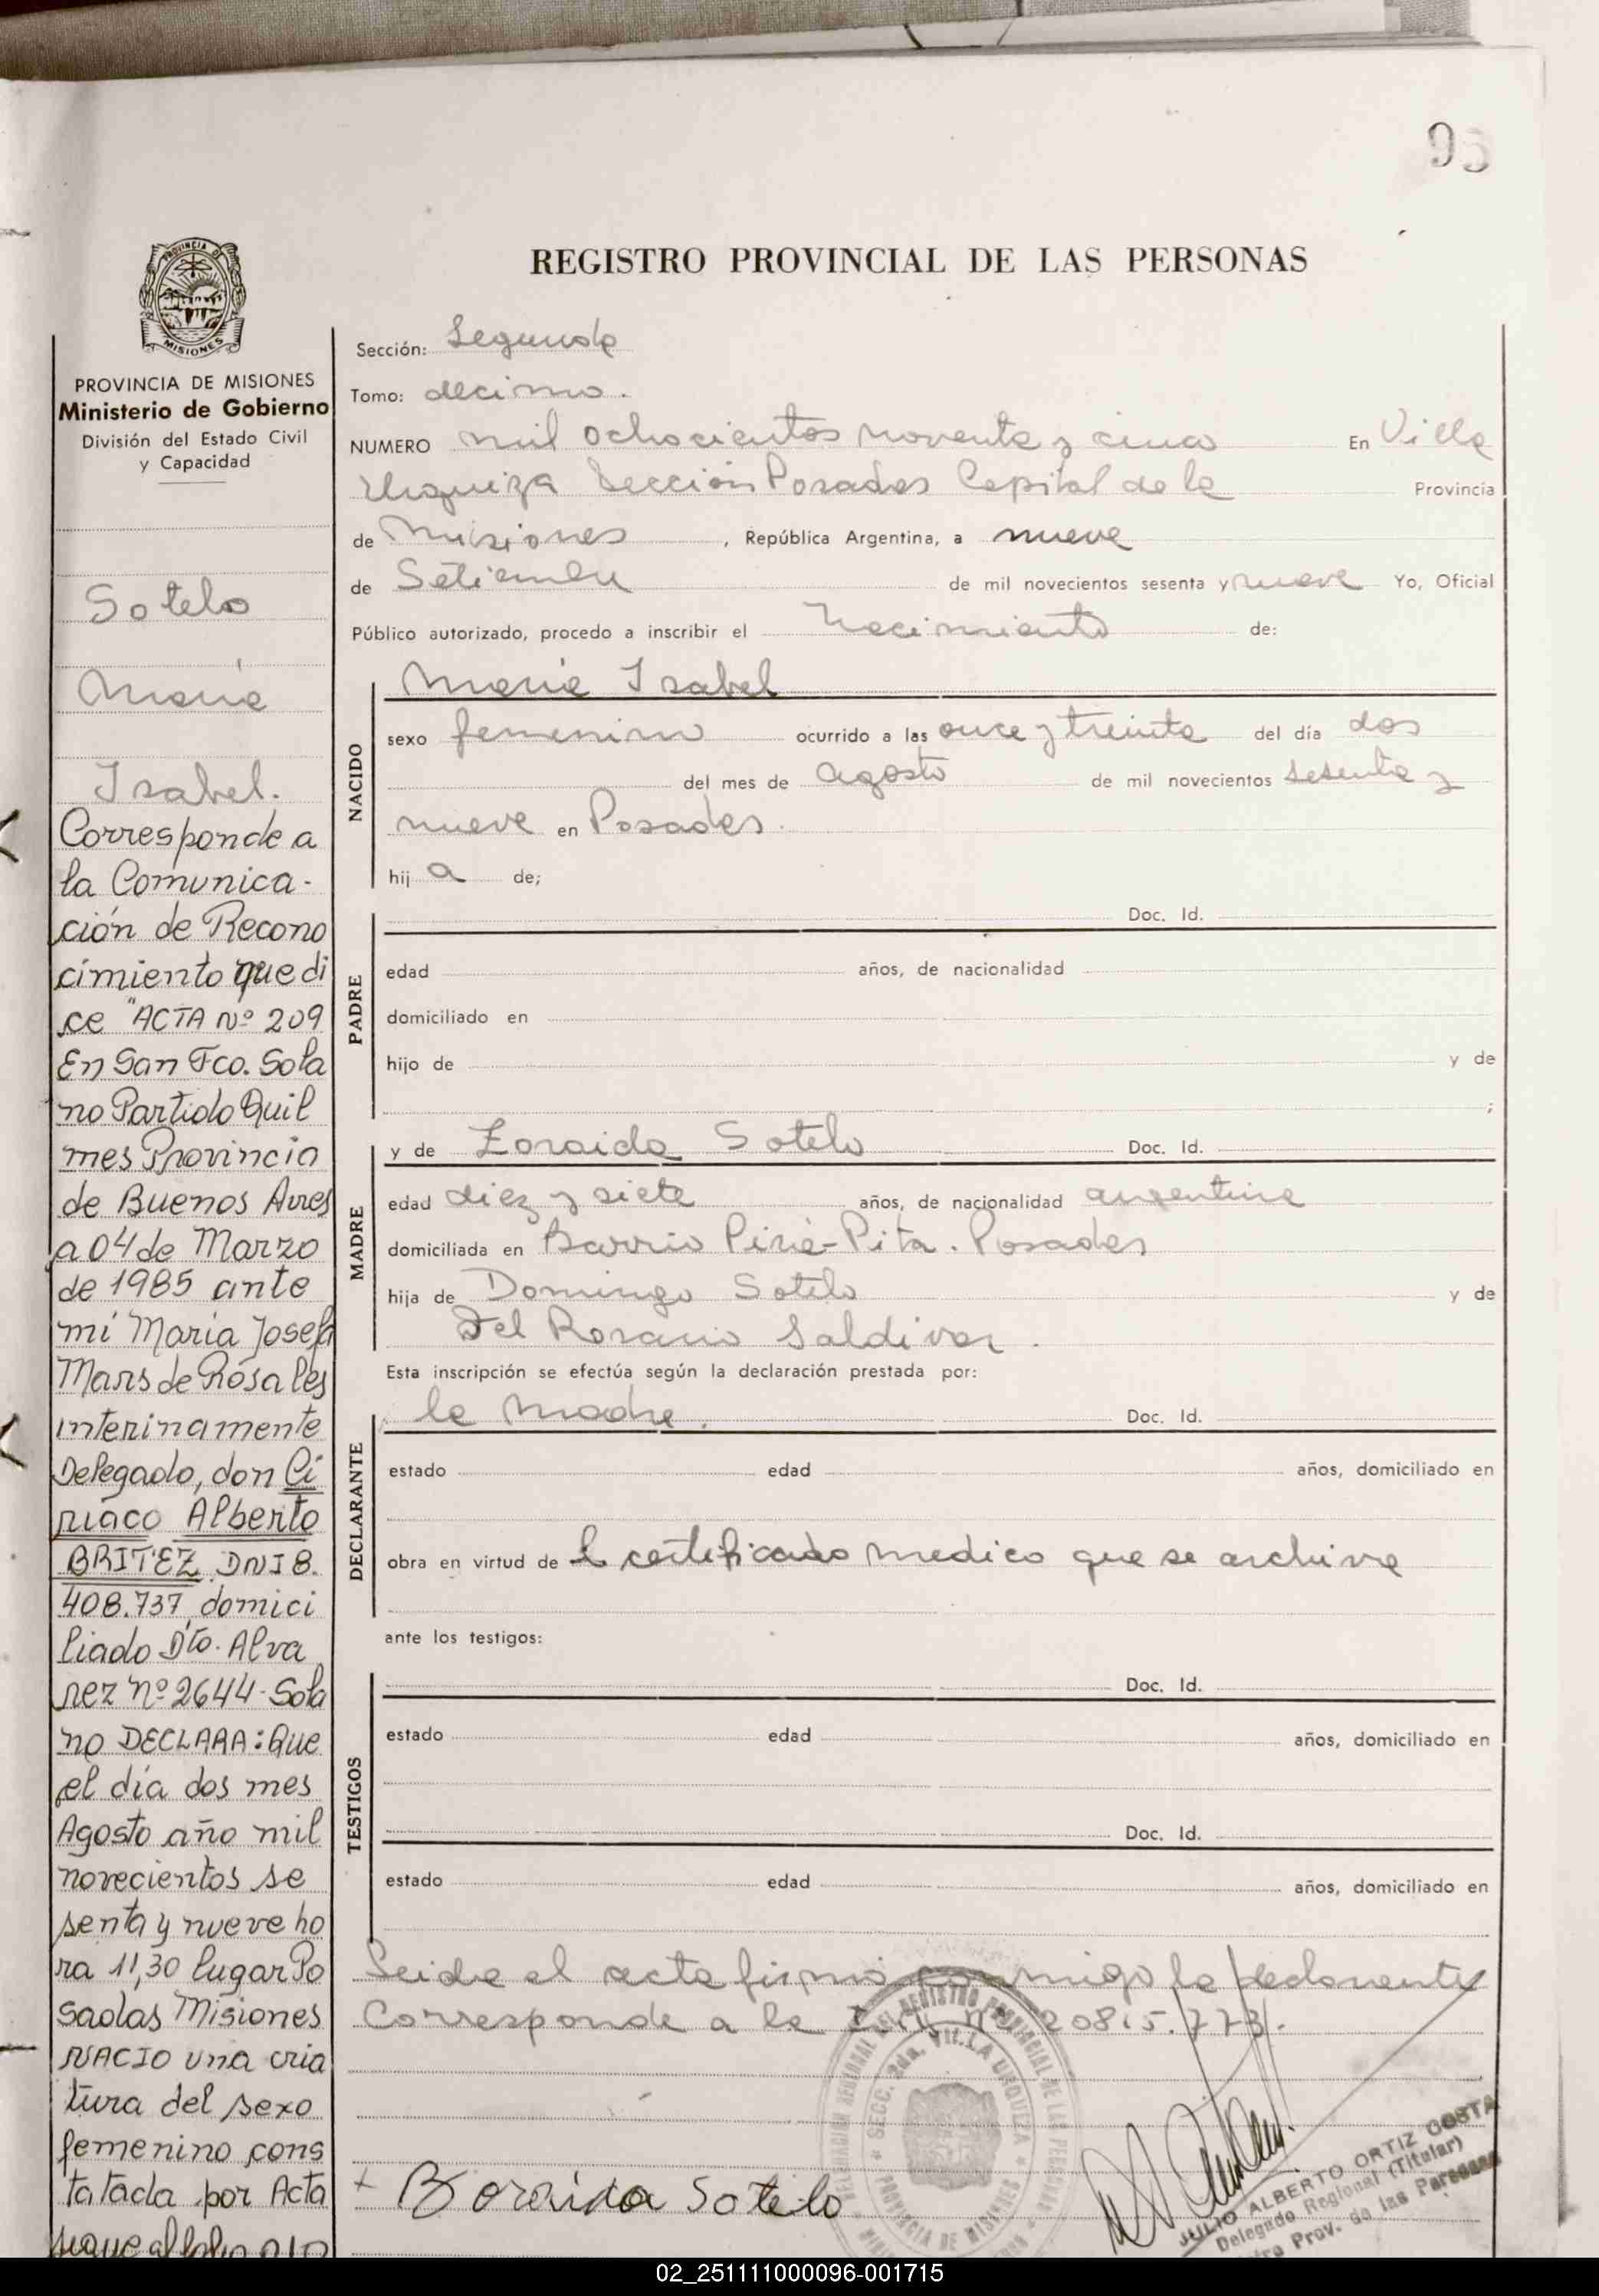 95
REGISTRO PROVINCIAL DE LAS PERSONAS
PROVINCIA DE
MISIONES
PROVINCIA DE MISIONES
Ministerio de Gobierno
División del Estado Civil
y Capacidad
Sotelo
María
Isabel.
Corresponde a
la Comunica-
ción de Recono
cimiento que di
ce "ACTA Nº 209
En San Fco. Sola
no Partido Quil
mes Provincia
de Buenos Aires
a 04 de Marzo
de 1985 ante
mi Maria Josefa
Mars de Rosales
interinamente
Delegado, don Ci
riaco Alberto
BRITEZ DNI 8.
408.737 domici
liado Dto. Alva
rez nº 2644-Sola
no DECLARA: Que
el día dos mes
Agosto año mil
novecientos se
senta y nueve ho
ra 11,30 lugar Po
sadas Misiones
NACIO una cria
tura del sexo
femenino cons
tatada por Acta
sigue al folio
Sección: Segunda
Tomo: decimo.
NUMERO mil ochocientos noventa y cinco En Villa
Urquiza Sección Posadas Capital de la Provincia
de Misiones, República Argentina, a nueve
de Setiembre de mil novecientos sesenta y nueve Yo, Oficial
Público autorizado, procedo a inscribir el Nacimiento de:
NACIDO
María Isabel
sexo femenino ocurrido a las once y treinta del día dos
del mes de agosto de mil novecientos sesenta y
nueve en Posadas.
hij a de;
PADRE
Doc. Id.
edad años, de nacionalidad
domiciliado en
hijo de y de
;
MADRE
y de Zoraida Sotelo Doc. Id.
edad diez y siete años, de nacionalidad argentina
domiciliada en Barrio Piré-Pita. Posadas
hija de Domingo Sotelo y de
Del Rosario Saldivar.
Esta inscripción se efectúa según la declaración prestada por:
DECLARANTE
la madre. Doc. Id.
estado edad años, domiciliado en
obra en virtud de l certificado medico que se archiva
ante los testigos:
TESTIGOS
Doc. Id.
estado edad años, domiciliado en
Doc. Id.
estado edad años, domiciliado en
Leida el acta firma conmigo la declarante
Corresponde a la nº 20815.773.
SECC. 2da. Vil. LA URQUIZA
PROVINCIA DE MISIONES
+ Boraida Sotelo
JULIO ALBERTO ORTIZ COSTA
Delegado Regional (Titular)
Prov. de las Personas
02_251111000096-001715